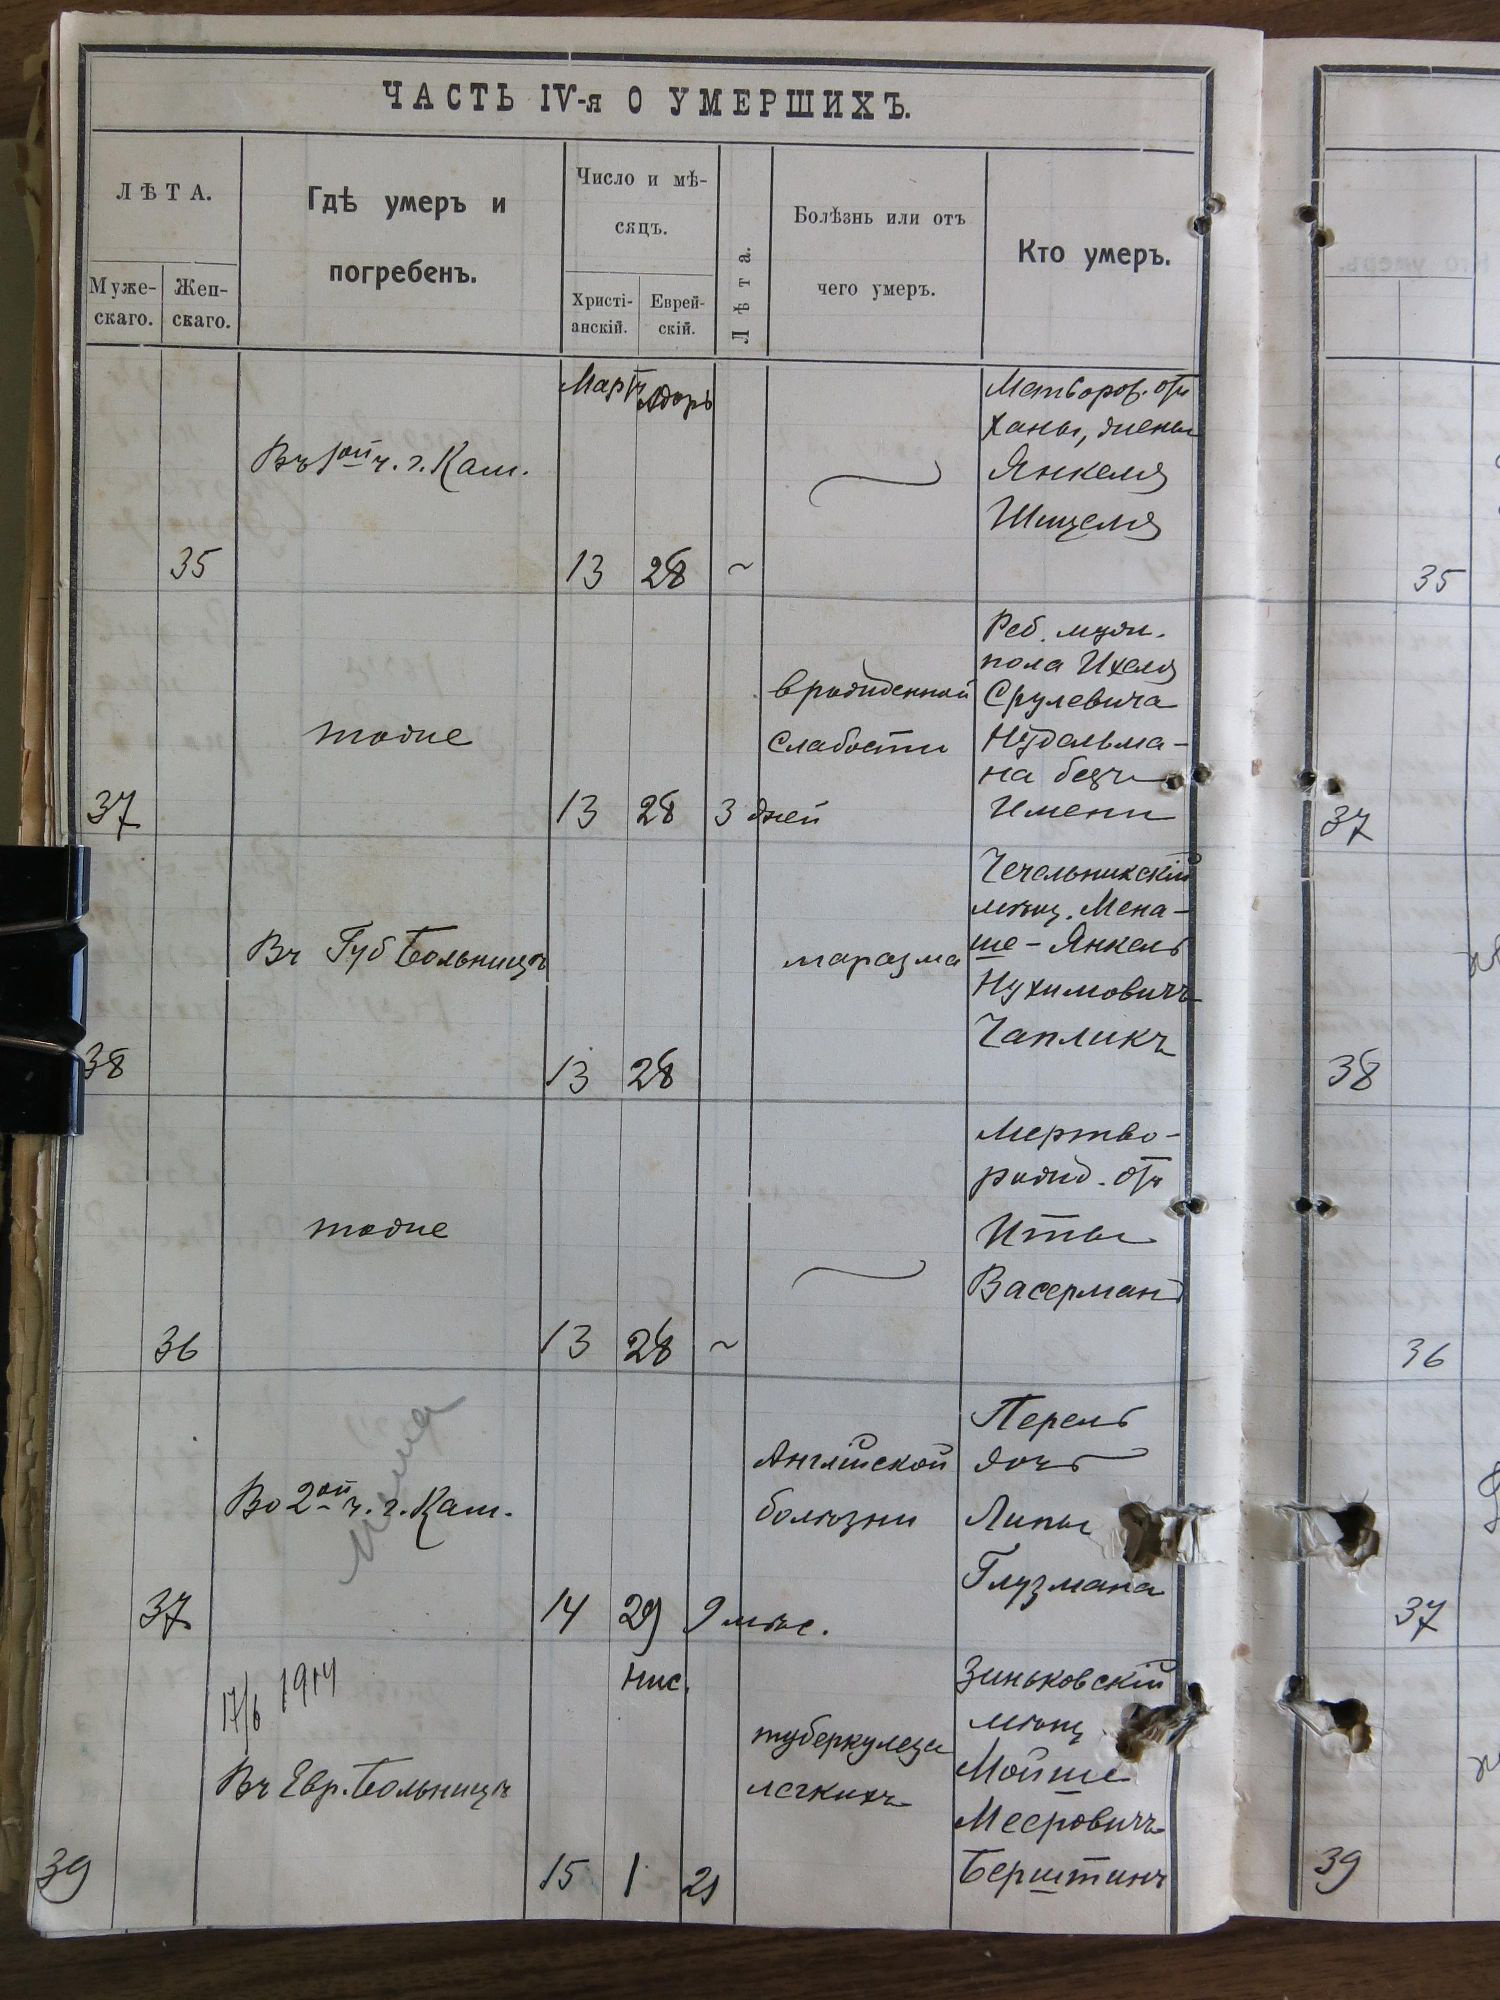 ЧАСТЬ IV-я О УМЕРШИХЪ.
ЛѢТА.
Муже-
скаго.
Жен-
скаго.
Гдѣ умеръ и
погребенъ.
Число и мѣ-
сяцъ.
Христі-
анскій.
Еврей-
скій.
Лѣта.
Болѣзнь или отъ
чего умеръ.
Кто умеръ.
Мартъ
Адоръ
35
Въ 1ой ч. г. Кам.
13
28
~
Метворож. отъ
Ханы, жены
Янкеля
Шицеля
35
37
тоже
13
28
3 дней
врожденной
слабости
Реб. муж.
пола Ихеля
Срулевича
Нудельма-
на безъ
имени
37
38
Въ Губ Больницѣ
13
28
маразма
Чечельникскій
мѣщ. Мена-
ше-Янкель
Нухимовичъ
Чапликъ
38
36
тоже
13
28
~
Мертво-
рожд. отъ
Иты
Васерманъ
36
37
Во 2ой ч. г. Кам.
14
29
9 мѣс.
Англійской
болѣзни
Перель
дочь
Липы
Глузмана
37
17/6 1914
39
Въ Евр. Больницѣ
15
Нис.
1
21
туберкулеза
легкихъ
Зиньковскій
мѣщ
Мойше
Мееровичъ
Берштинъ
39